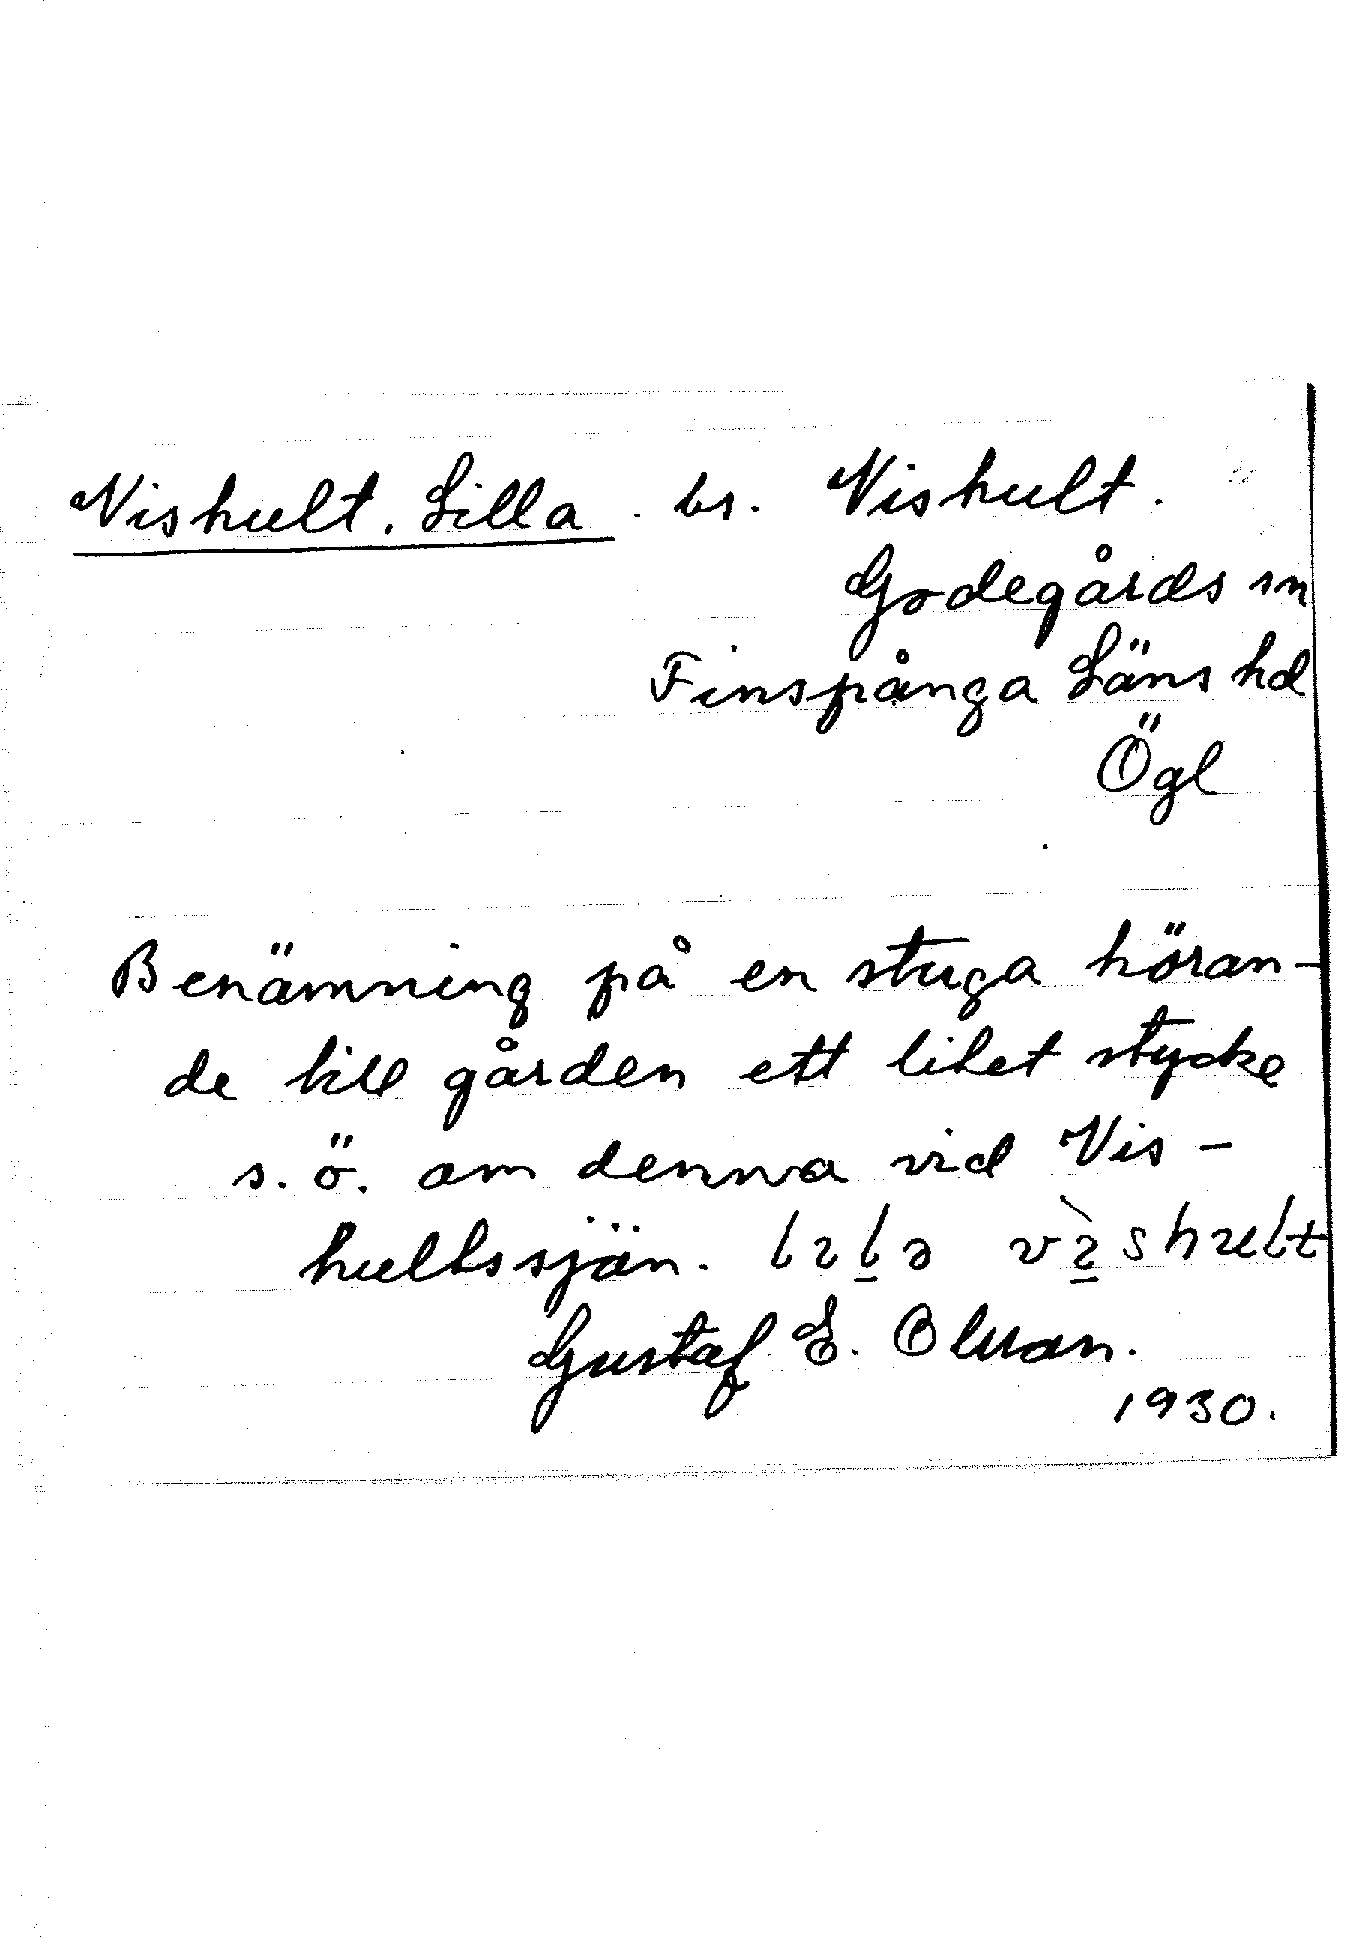 Vishult. Lilla . ls. Vishult.
Godegårds sn
Finspånga Läns hd
Ögl
Benämning på en stuga höran-
de till gården ett litet stycke
s.ö. om denna vid Vis-
hultssjön.
Gustaf E. Olsson.
1930.